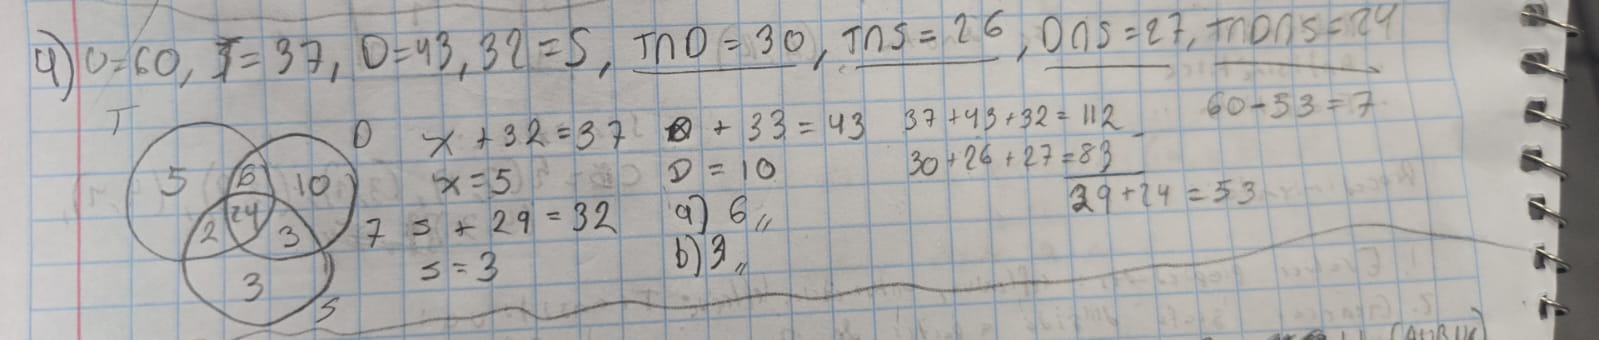 4) U=60, T=37, D=43, 32=S, T∩D=30, T∩S=26, D∩S=27, T∩D∩S=24
T
D
5
6
10
24
2
3
7
3
S
x+32=37
x=5
s+29=32
s=3
D+33=43
D=10
a) 6,,
b) 3,,
37+43+32=112
30+26+27=83
29+24=53
60-53=7
(AUBUC)